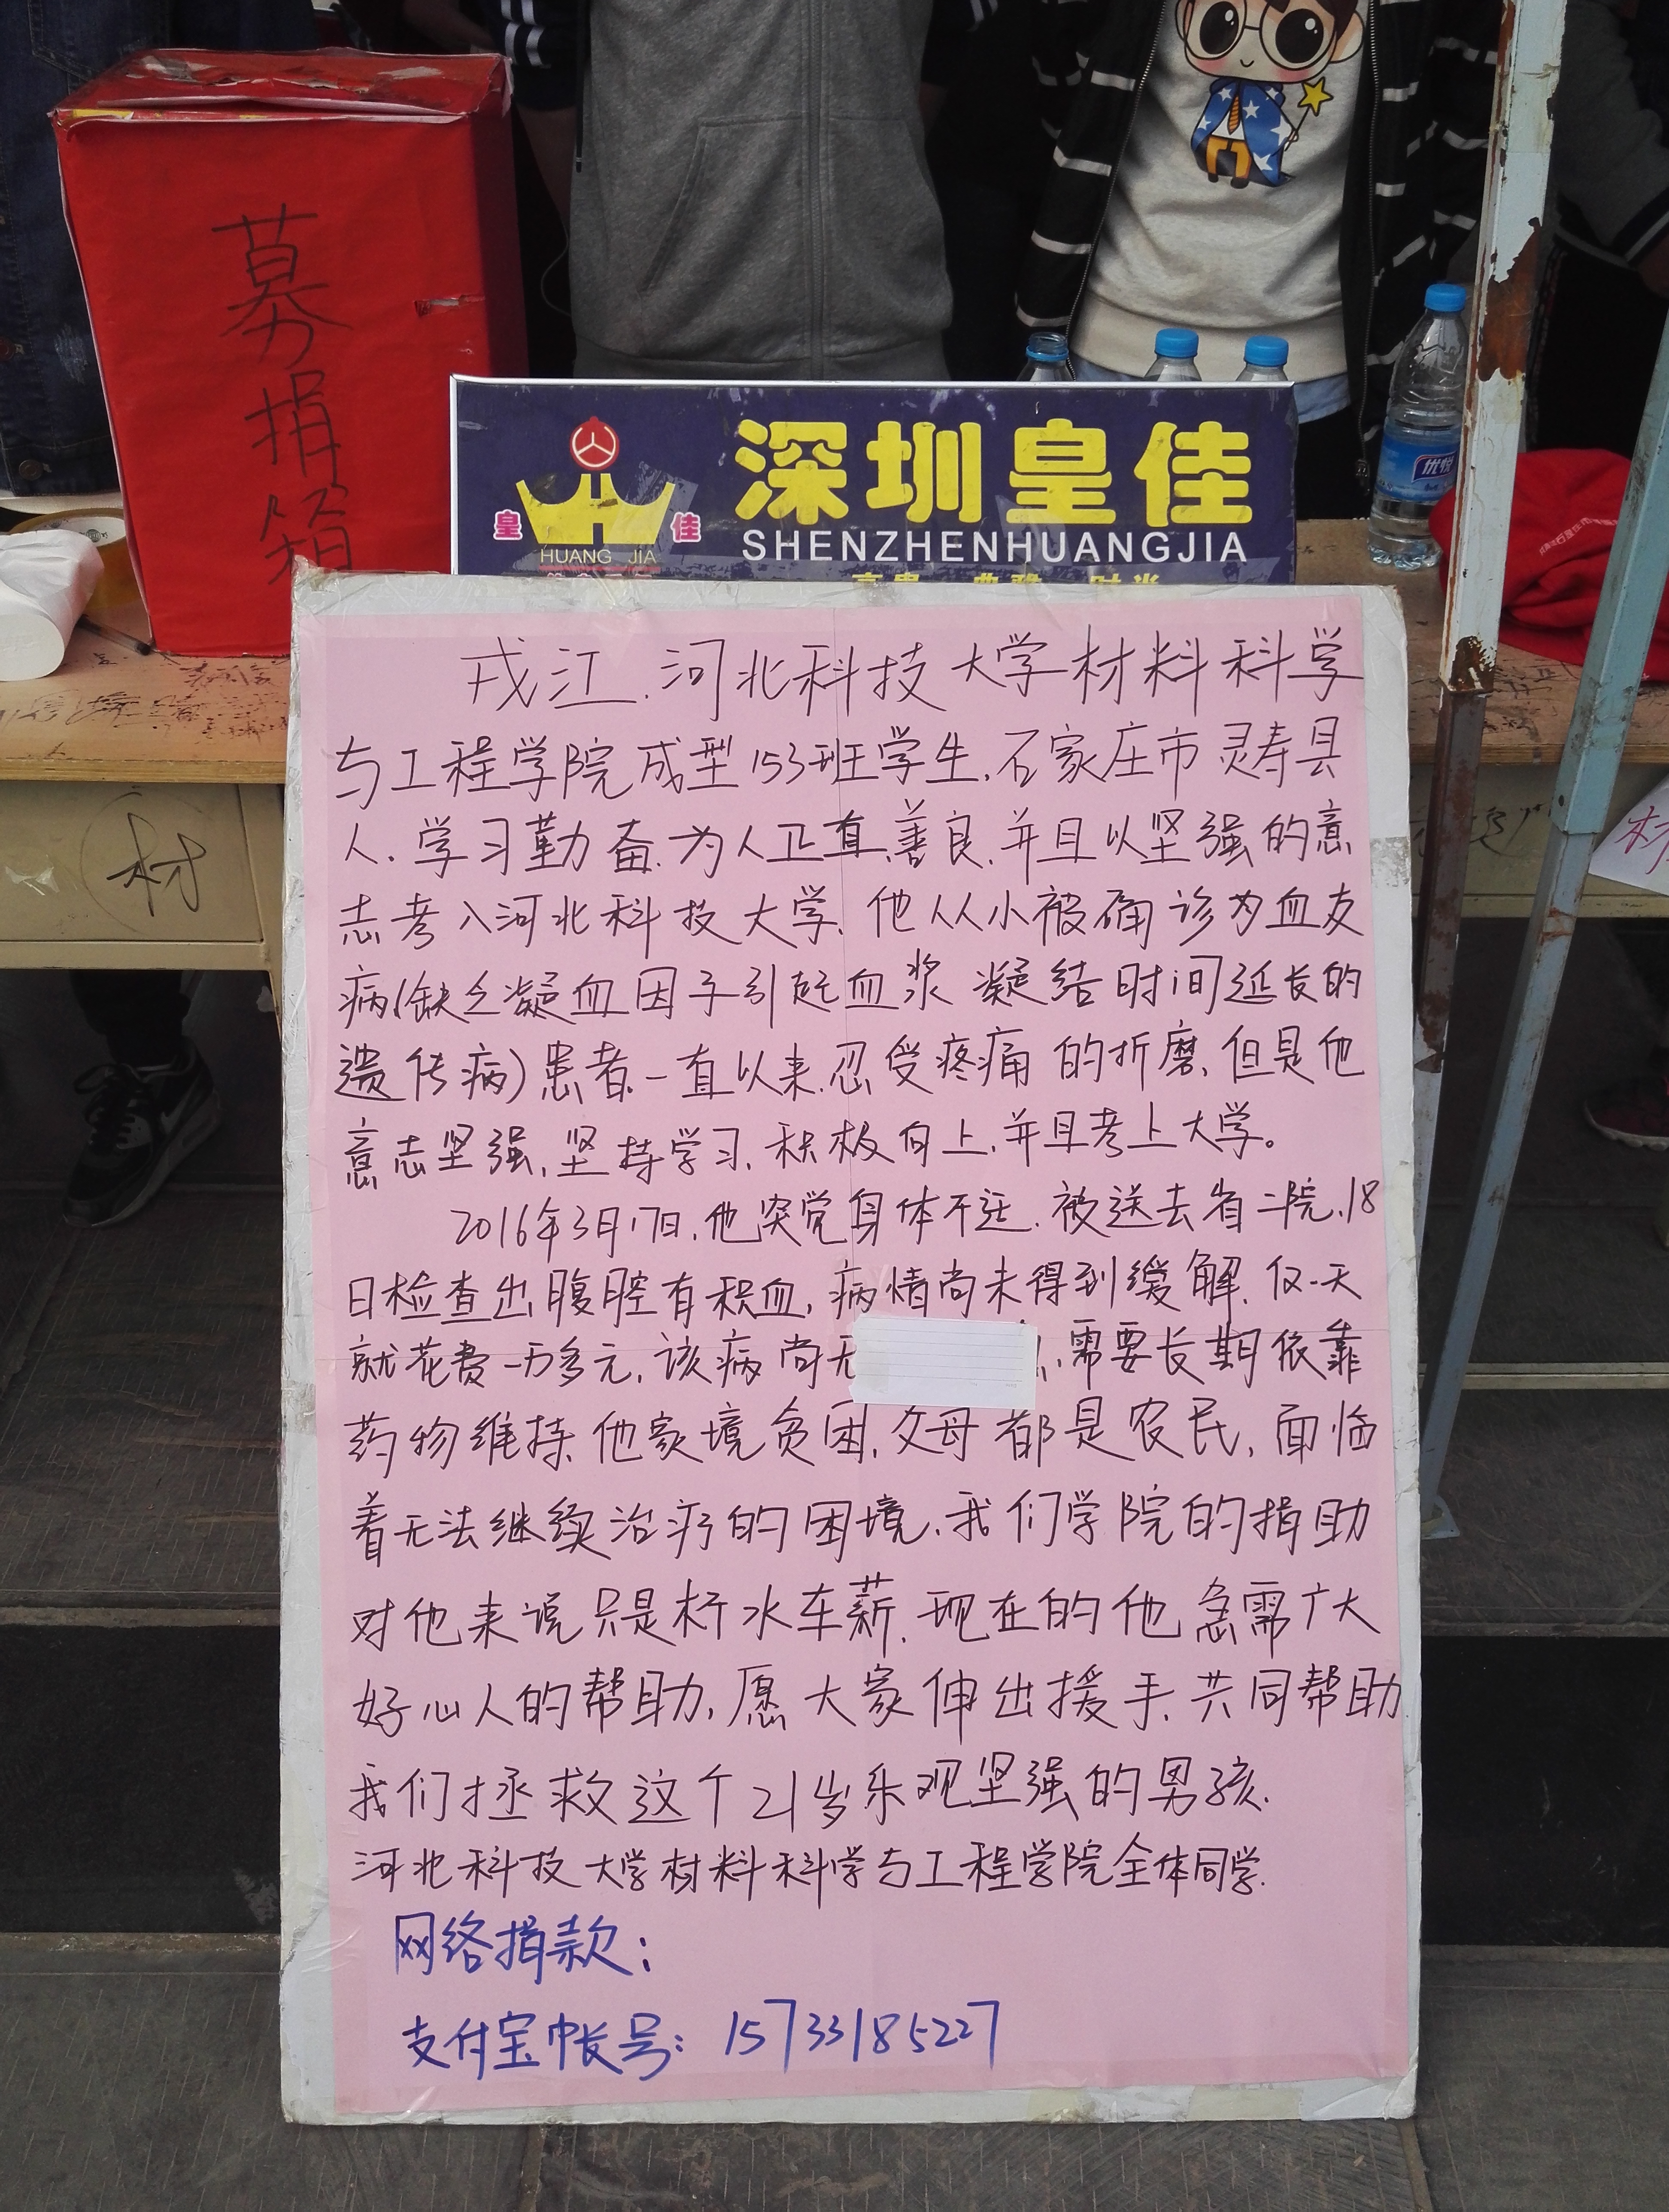 募捐箱
深圳皇佳
皇 佳
HUANG JIA
SHENZHENHUANGJIA
优悦
材
戎江.河北科技大学材料科学
与工程学院成型153班学生.石家庄市灵寿县
人.学习勤奋.为人正直.善良.并且以坚强的意
志考入河北科技大学.他从小被确诊为血友
病(缺乏凝血因子引起血浆凝结时间延长的
遗传病)患者.一直以来.忍受疼痛的折磨.但是他
意志坚强.坚持学习.积极向上.并且考上大学。
2016年3月17日.他突觉身体不适.被送去省二院.18
日检查出腹腔有积血.病情尚未得到缓解.仅一天
就花费一万多元.该病尚无 .需要长期依靠
药物维持.他家境贫困.父母都是农民.面临
着无法继续治疗的困境.我们学院的捐助
对他来说只是杯水车薪.现在的他急需广大
好心人的帮助.愿大家伸出援手.共同帮助
我们拯救这个21岁乐观坚强的男孩.
河北科技大学材料科学与工程学院全体同学.
网络捐款:
支付宝帐号: 15733185227